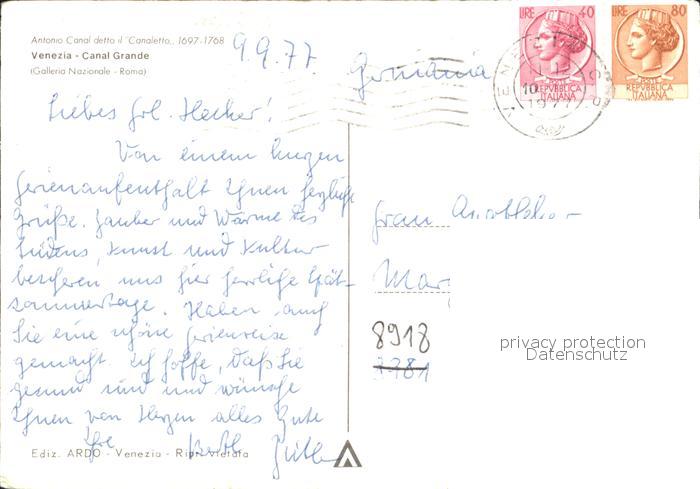 Antonio Canal detto il "Canaletto,, 1697-1768
Venezia - Canal Grande
(Galleria Nazionale - Roma)
9.9.77
Germania
LIRE 40
LIRE 80
POSTE
REPVBBLICA
ITALIANA
POSTE
REPVBBLICA
ITALIANA
Liebes Frl. Hecker!
Von einem kurzen
Ferienaufenthalt Ihnen herzliche
Grüße. Zauber und Wärme des
Südens, Kunst und Kultur
bescheren uns hier herrliche Spät-
sommertage. Haben auch
Sie eine schöne Ferienreise
gemacht? Ich hoffe, daß Sie
gesund sind und wünsche
Ihnen von Herzen alles Gute
Ihre
Frau
8918
privacy protection
Datenschutz
Ediz. ARDO - Venezia - Ripr. vietata